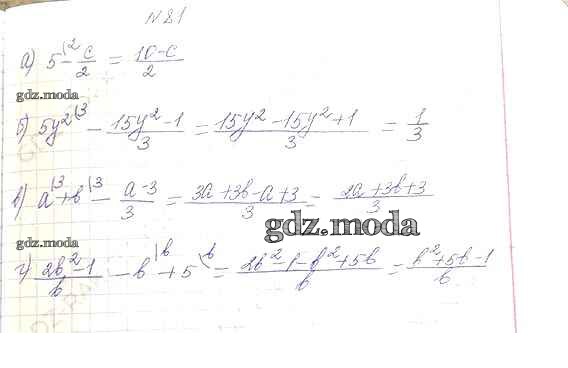 №81
а) 5^{\2} - c/2 = (10-c)/2
gdz.moda
б) 5y²^{\3} - (15y²-1)/3 = (15y²-15y²+1)/3 = 1/3
в) a^{\3} + b^{\3} - (a-3)/3 = (3a+3b-a+3)/3 = (2a+3b+3)/3
gdz.moda
gdz.moda
г) (2b²-1)/b - b^{\b} + 5^{\b} = (2b²-1-b²+5b)/b = (b²+5b-1)/b